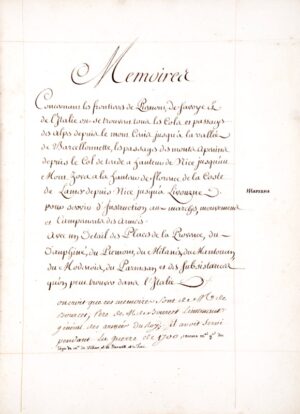 Memoires
Concernant les frontieres de Piemont, de Savoye &
de l'Italie ou se trouvent tous les Cols et passages
des Alpes depuis le mont Cenis jusqu'à la vallée
de Barcellonnette, les passages des monts Apenins
depuis le Col de tende a hauteur de Nice jusqu'au
Mont a la hauteur de florence de la Coste
de depuis Nice jusqu'à Livourne
pour servir d'Instruction aux marches, mouvemens
et Campemens des Armées
Avec un Detail des Places de la Provence, du
Dauphiné, du Piemont, du Milanis, du Mantouan
du Modenois, du Parmesan et des Subsistances
qu'on peut trouver dans l'Italie
on croit que ces memoires sont de Mr. de
pere de Mr. de lieutenant
général des armées du Roy, il avoit servi
pendant la guerre de 1700